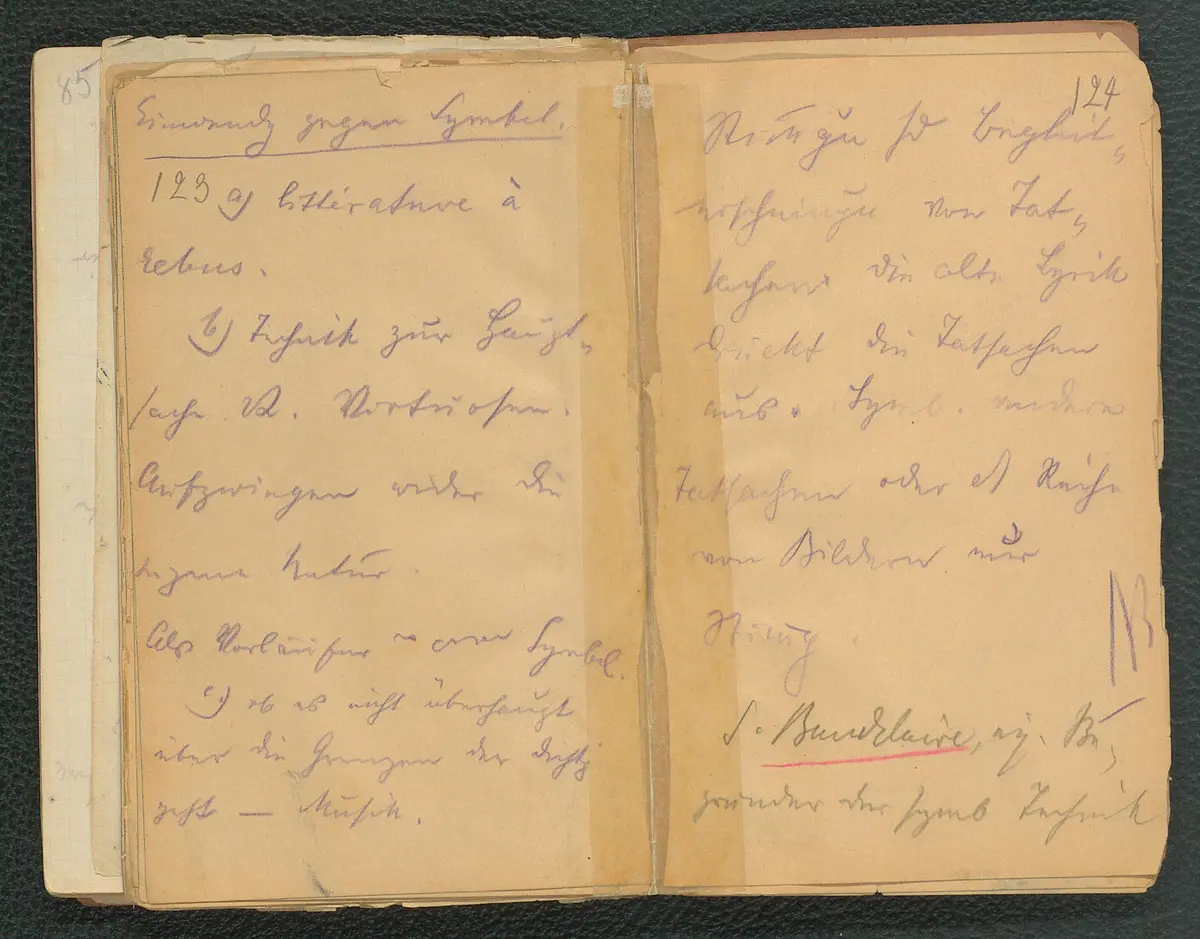 85
Einwendg gegen Symbol.
123 a) littérature à
rebus.
b) Technik zur Haupt-
sache Virtuosen.
Aufzwingen wider die
eigene Natur.
Als Vorläufer Symbol.
c) ob es nicht überhaupt
über die Grenzen der Dichtg
geht — Musik.
124
Stimmgn sd Begleit-
erscheingn von Tat-
sachen. die alte Lyrik
drückt die Tatsachen
aus. Symb. andere
Tatsachen oder Reihe
von Bildern nur
Stimmg.
NB
S. Baudelaire, eig. Be-
gründer der symb Technik